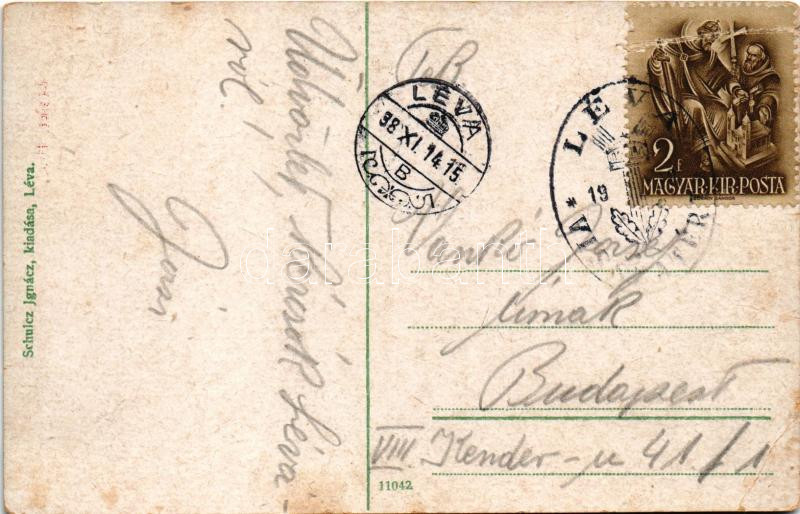 Üdvözlet, Léva-
ról,
Schulcz Jgnácz, kiadása, Léva.
LÉVA
38 XI. 14.15
B
LÉVA
19
2 f
MAGYAR·KIR·POSTA
Jankó József
úrnak
Budapest
VIII. Kender-u 41/1
11042